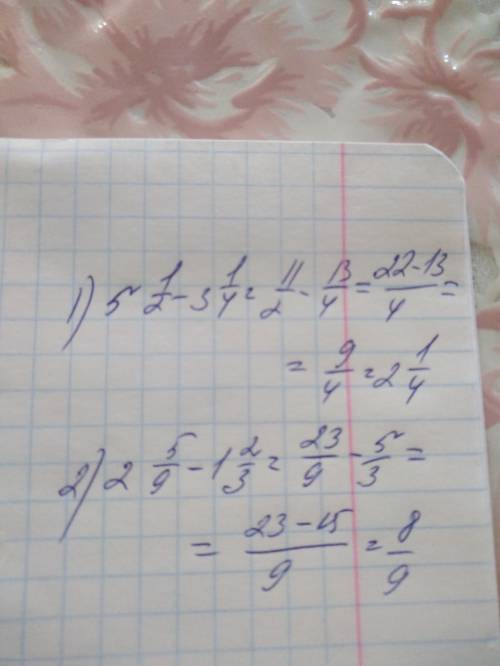 1) 5 1/2 - 3 1/4 = 11/2 - 13/4 = 22-13/4 =
= 9/4 = 2 1/4
2) 2 5/9 - 1 2/3 = 23/9 - 5/3 =
= 23-15/9 = 8/9